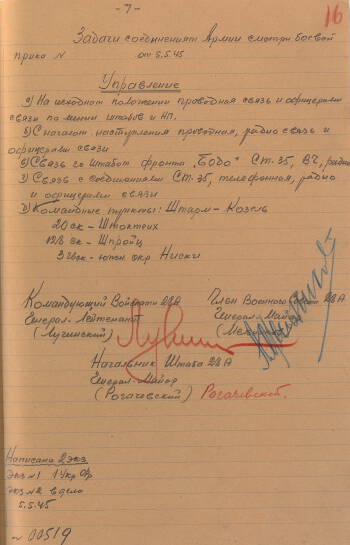 - 7 -
16
Задачи соединениям Армии смотри боевой
приказ № от 5.5.45
Управление
а) На исходном положении проводная связь и офицерами
связи по линии штабов и НП.
б) С началом наступления проводная, радио связь и
офицерами связи
в) Связь со штабом фронта "Бодо" СТ-35, ВЧ, радио
г) Связь с соединениями СТ-35, телефонная, радио
и офицерами связи
д) Командные пункты: Штарм - Козель
20 ск - Штоктейх
128 ск - Шпройц
3 гв ск - южн. окр Ниски
Командующий Войсками 28А Член Военного Совета 28А
Генерал-Лейтенант Генерал-Майор
(Лучинский)
Начальник Штаба 28А
Генерал-Майор
(Рогачевский) Рогачевский.
Написано 2 экз
Экз №1 1 Укр Фр
Экз №2 в дело
5.5.45
№ 00519